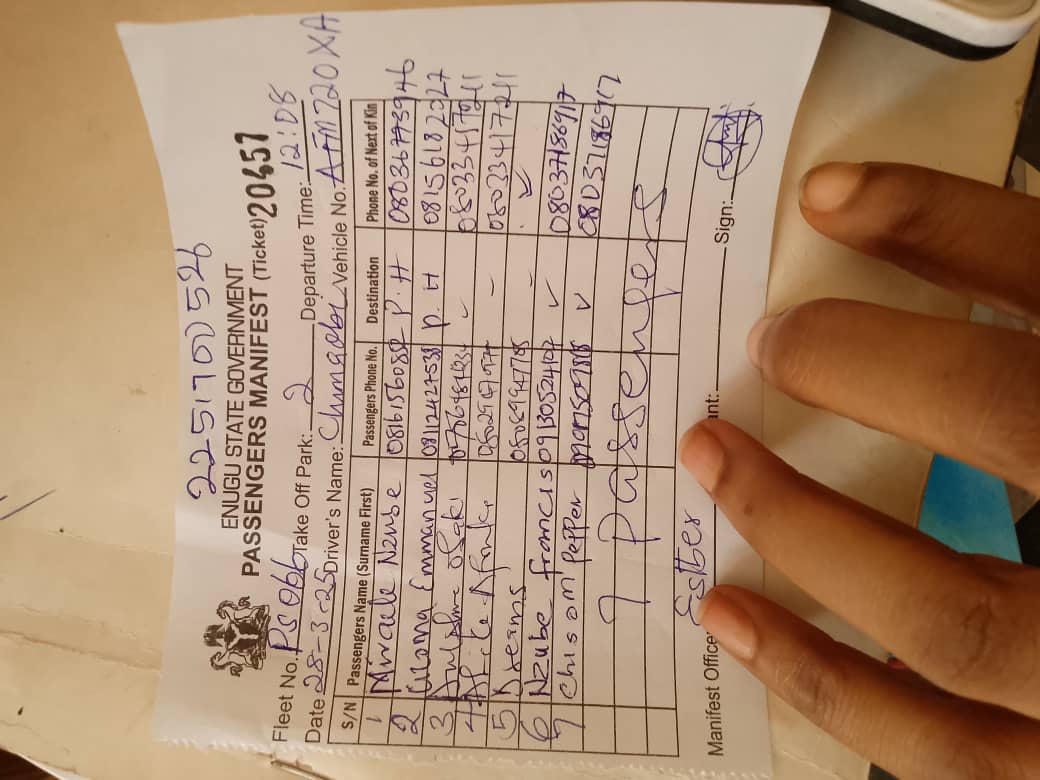 2251701526
ENUGU STATE GOVERNMENT
PASSENGERS MANIFEST (Ticket) 20457
Fleet No. PS066 Take Off Park: 2 Departure Time: 12:08
Date 28-3-25 Driver's Name: Chinaobi Vehicle No.
S/N Passengers Name (Surname First) Passengers Phone No. Destination Phone No. of Next of Kin
1 Miracle Nzube 08161516082 P.H 08036773946
2 Ucona Emmanuel 08112427538 P.H 08156182027
3 08033417211
4 08033417211
5
6 Nzube Francis 09130524107 ✓ 08037186917
7 Chisom Pepper ✓ 08037186917
7 Passengers
Manifest Office Esther ant: Sign: